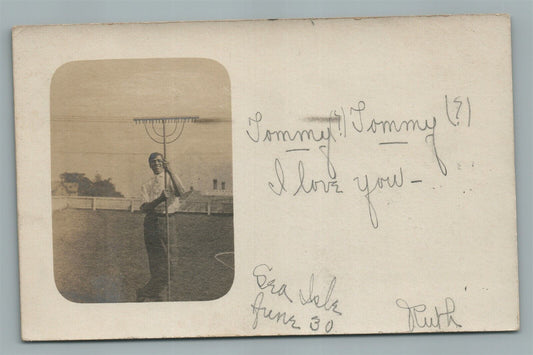 Tommy(?) Tommy(?)
I love you –
Sea Isle
June 30
Ruth